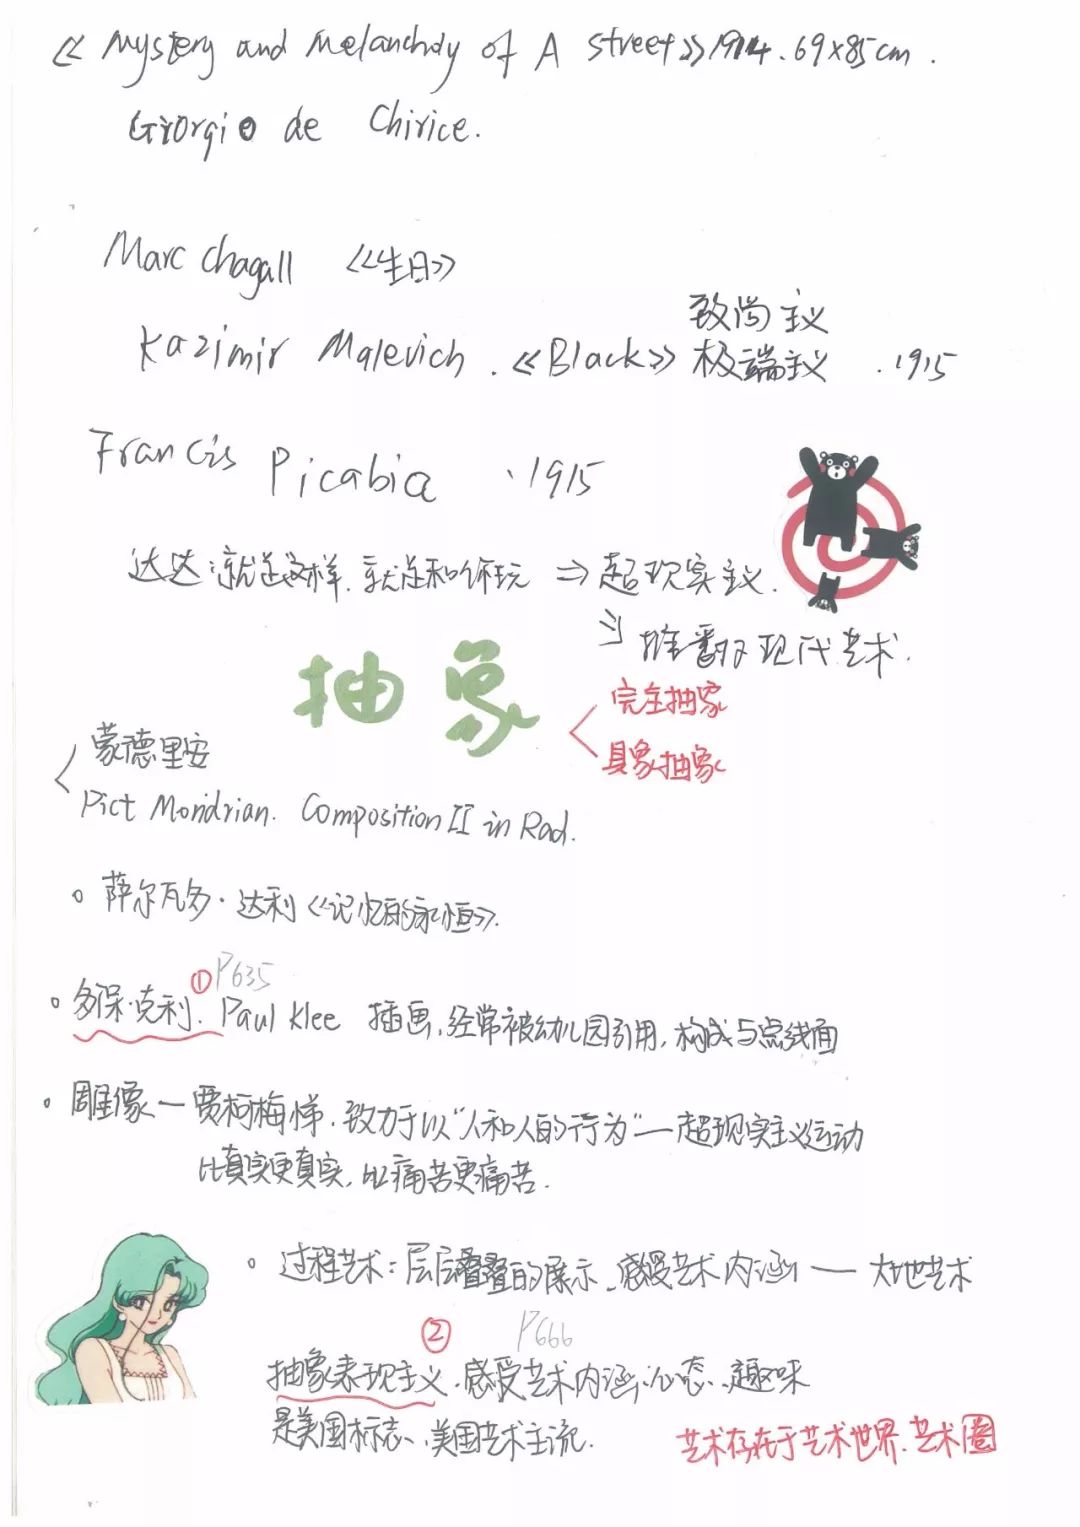 《Mystery and Melancholy of A street》1914. 69×85cm.
Giorgio de Chirice.
Marc Chagall 《生日》
致尚主义
Kazimir Malevich.《Black》极端主义 .1915
Francis Picabia 、1915
达达:就是这样.就是和你玩 ⇒ 超现实主义.
推翻了现代艺术.
抽象
完全抽象
具象抽象
蒙德里安
Pict Mondrian. Composition II in Rad.
萨尔瓦多·达利《记忆的永恒》.
① P635
多保·克利. Paul Klee 插画,经常被幼儿园引用,构成与点线面
雕像—贾柯梅悌.致力于以“人和人的行为”—超现实主义运动
比真实更真实,比痛苦更痛苦.
过程艺术:层层叠叠的展示、感受艺术内涵 — 大地艺术
② P666
抽象表现主义.感受艺术内涵、心态、趣味
是美国标志、美国艺术主流.
艺术存在于艺术世界.艺术圈